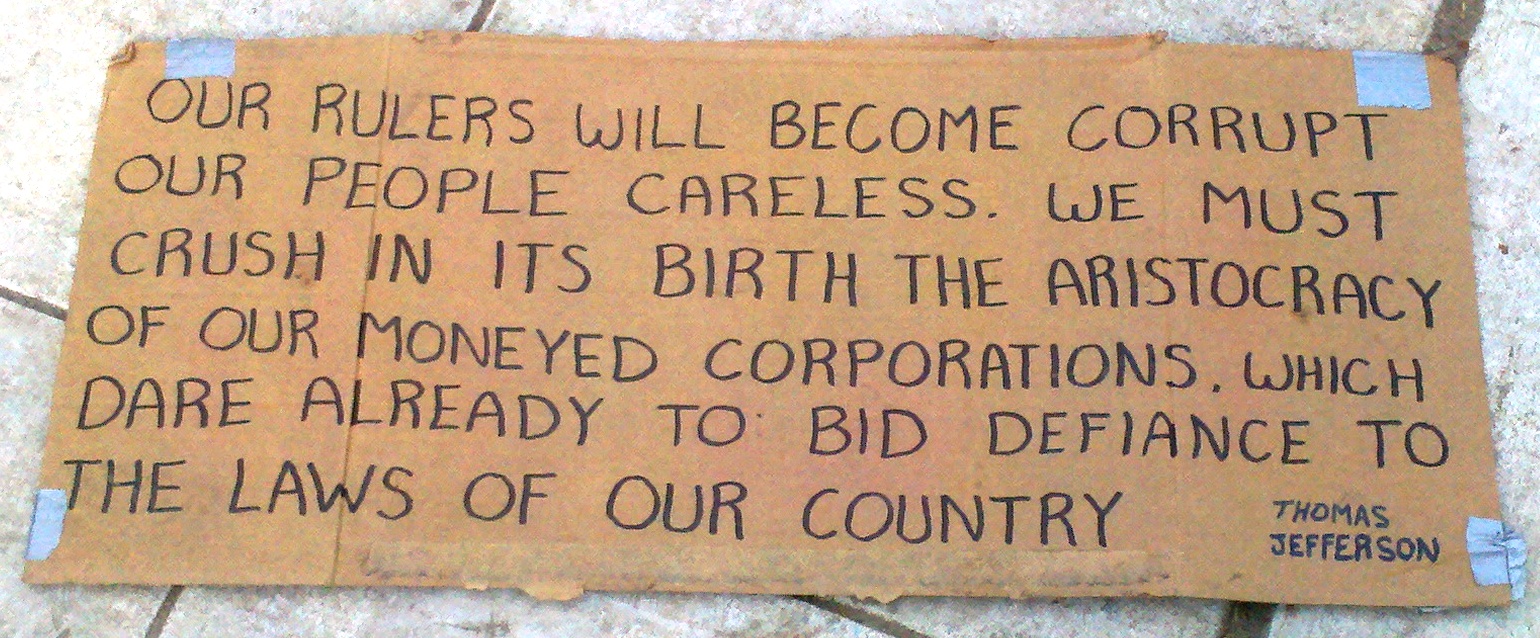 OUR RULERS WILL BECOME CORRUPT
OUR PEOPLE CARELESS. WE MUST
CRUSH IN ITS BIRTH THE ARISTOCRACY
OF OUR MONEYED CORPORATIONS. WHICH
DARE ALREADY TO BID DEFIANCE TO
THE LAWS OF OUR COUNTRY
THOMAS
JEFFERSON